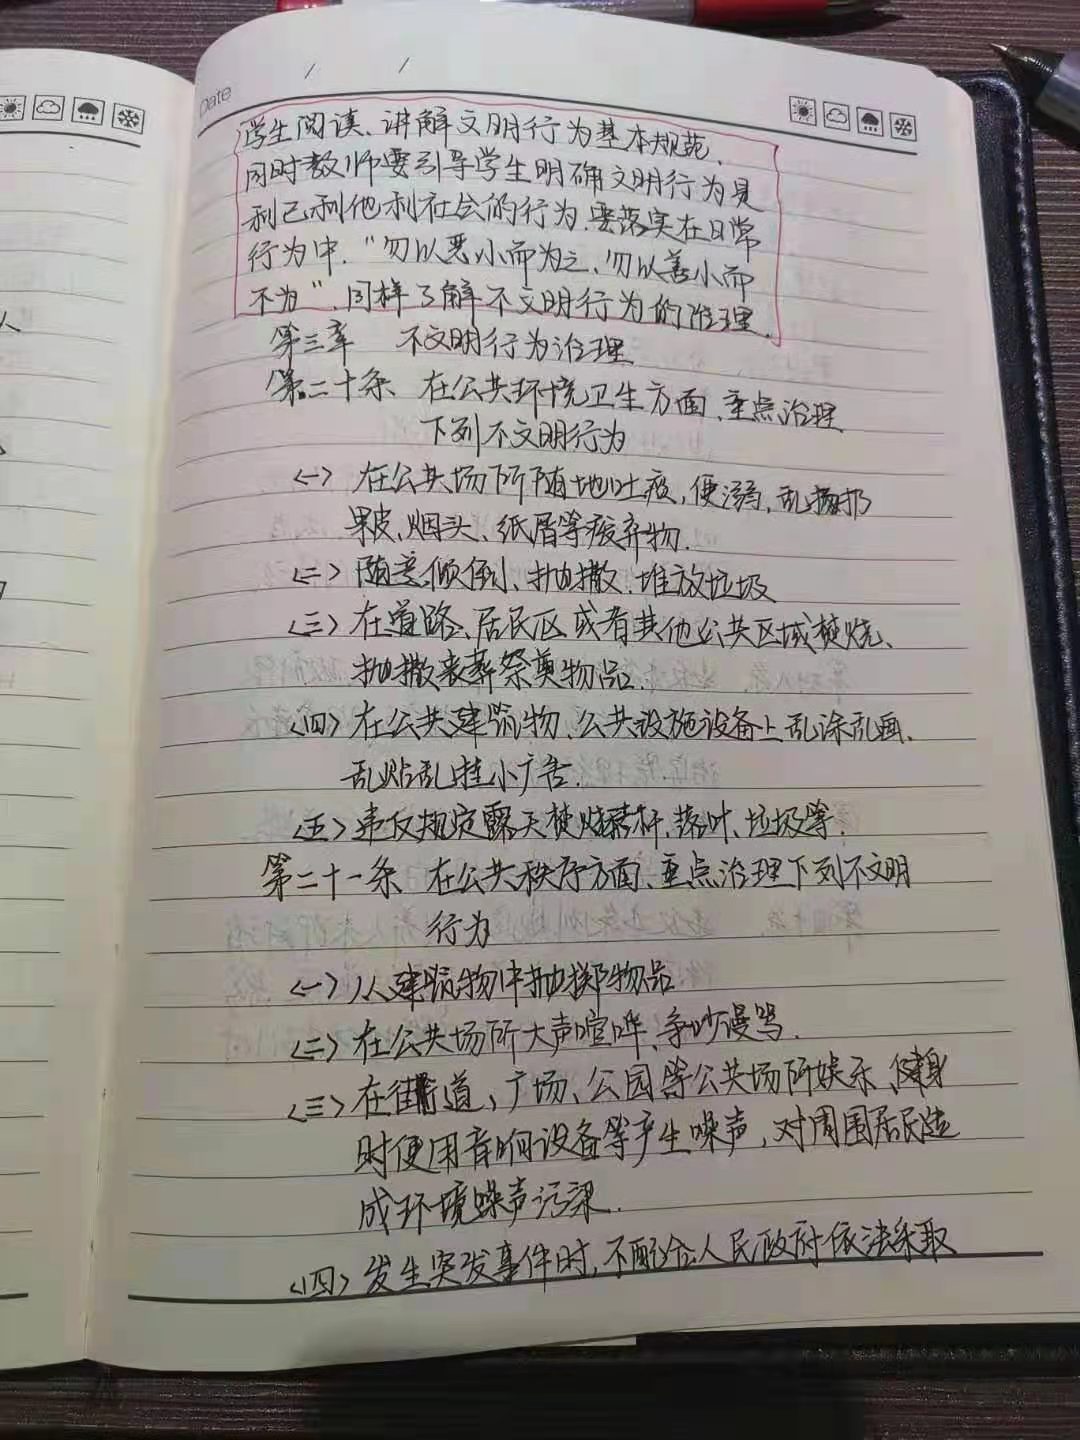 Date / /
学生阅读、讲解文明行为基本规范.
同时教师要引导学生明确文明行为是
利己利他利社会的行为.要落实在日常
行为中."勿以恶小而为之、勿以善小而
不为".同样了解不文明行为的治理.
第三章 不文明行为治理
第二十条、在公共环境卫生方面、重点治理
下列不文明行为
<一> 在公共场所随地吐痰,便溺,乱扔
果皮、烟头、纸屑等废弃物.
<二> 随意倾倒、抛撒、堆放垃圾
<三> 在道路、居民区或者其他公共区域焚烧、
抛撒丧葬祭奠物品.
<四> 在公共建筑物、公共设施设备上乱涂乱画、
乱贴乱挂小广告.
<五> 违反规定露天焚烧秸杆、落叶、垃圾等.
第二十一条、在公共秩序方面、重点治理下列不文明
行为
<一> 从建筑物中抛掷物品
<二> 在公共场所大声喧哗、争吵谩骂.
<三> 在街道、广场、公园等公共场所娱乐、健身
时使用音响设备等产生噪声,对周围居民造
成环境噪声污染.
<四> 发生突发事件时,不配合人民政府依法采取